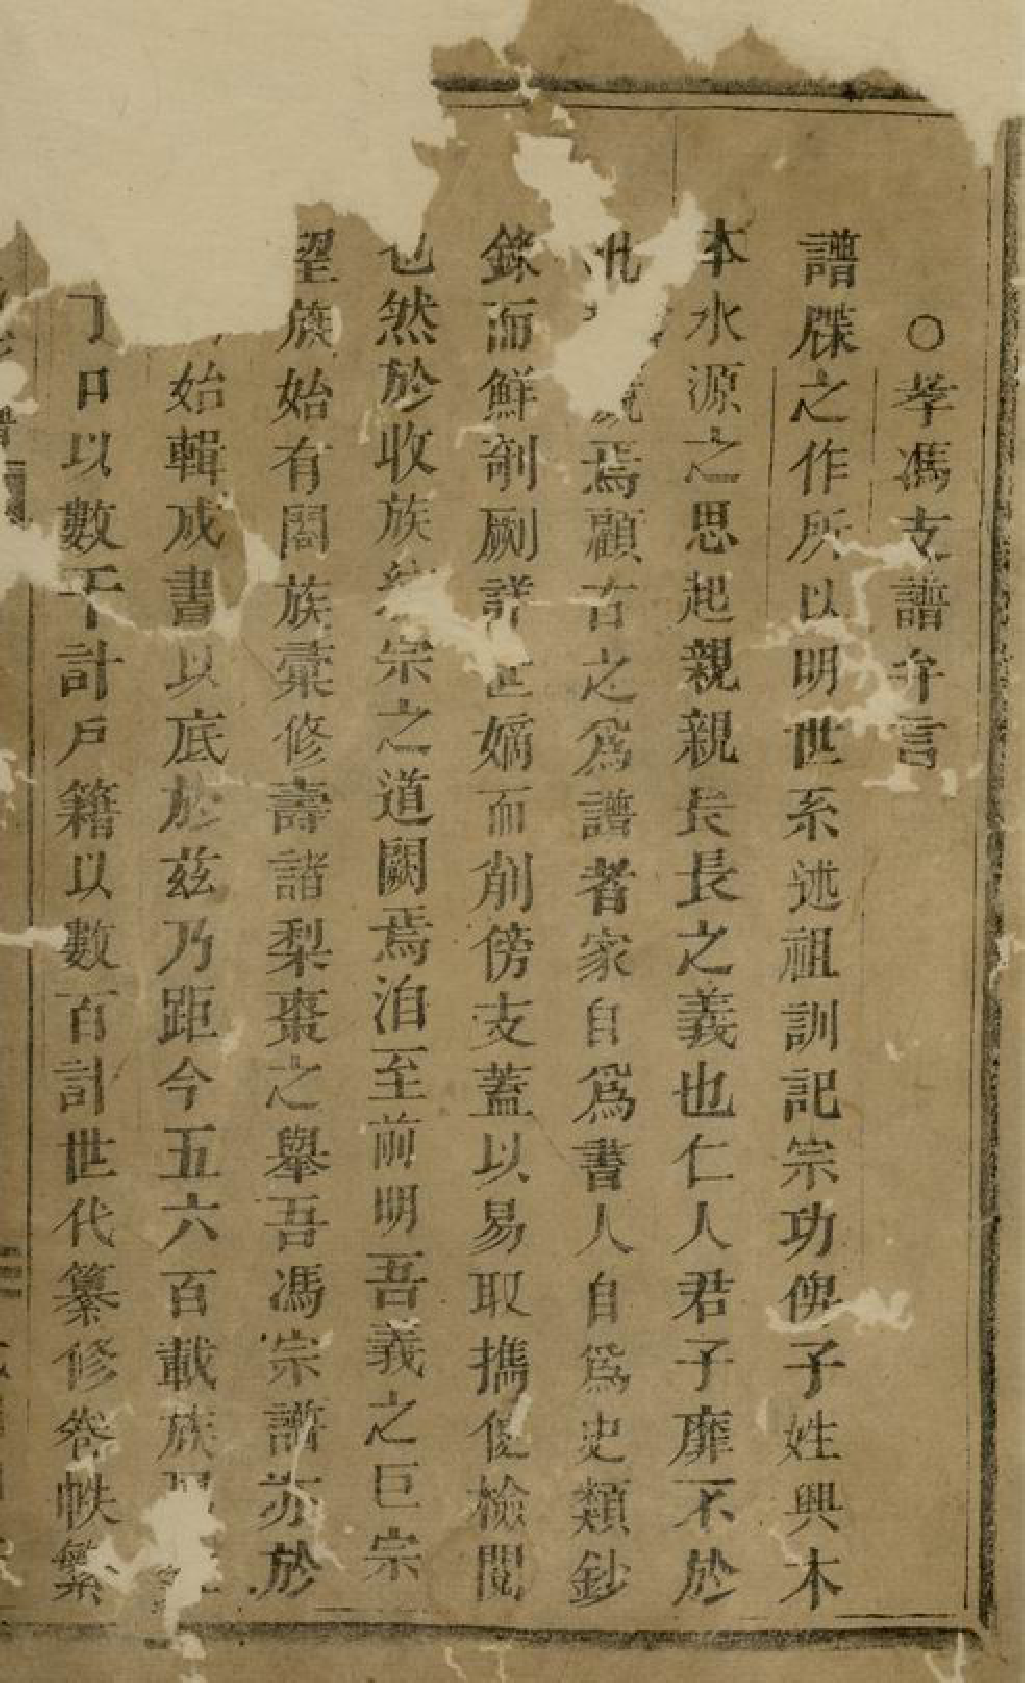 ○孝馮支譜弁言
譜牒之作所以明世系述祖訓記宗功俾子姓興木
本水源之思起親親長長之義也仁人君子靡不於
焉顧古之爲譜者家自爲書人自爲史類鈔
錄而鮮剞劂詳世嫡而削傍支蓋以易取攜便檢閱
也然於收族宗之道闕焉洎至前明吾義之巨宗
望族始有闔族彙修壽諸梨棗之舉吾馮宗譜亦於
始輯成書以底於茲乃距今五六百載族
口以數千計戶籍以數百計世代纂修卷帙繁